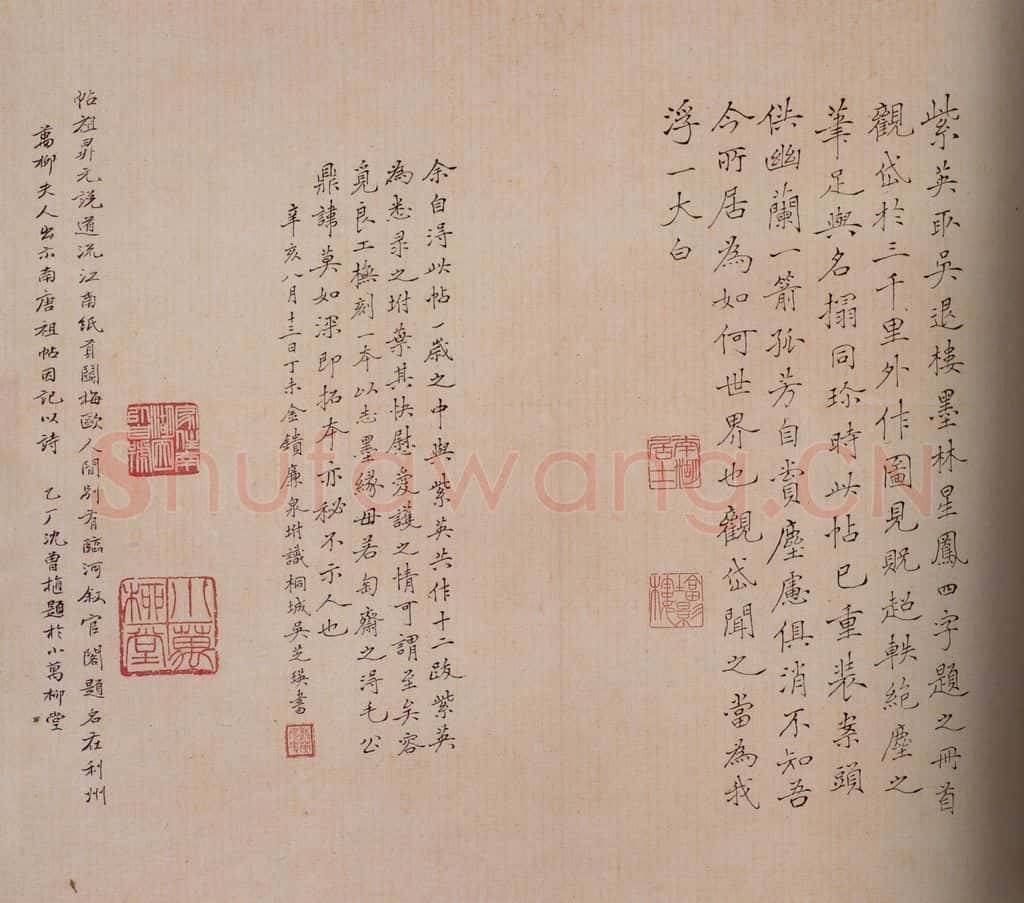 紫英取吳退樓墨林星鳳四字題之冊首
觀岱於三千里外作圖見貺超軼絕塵之
筆足與名搨同珍時此帖已重裝案頭
供幽蘭一箭孤芳自賞塵慮俱消不知吾
今所居為如何世界也觀岱聞之當為我
浮一大白
余自得此帖一歲之中與紫英共作十二跋紫英
為悉录之坿葉其快慰愛護之情可謂至矣容
覓良工橅刻一本以志墨緣毋若匋齋之得毛公
鼎諱莫如深即拓本亦秘不示人也
辛亥八月十三日丁未金鐀廉泉坿識桐城吳芝瑛書
小萬柳堂
帖祖昇元說遁流江南紙貢鬭梅歐人間別有臨河敘官閣題名在利州
萬柳夫人出示南唐祖帖因記以詩 乙丁沈曾植題於小萬柳堂
Shufawang.CN